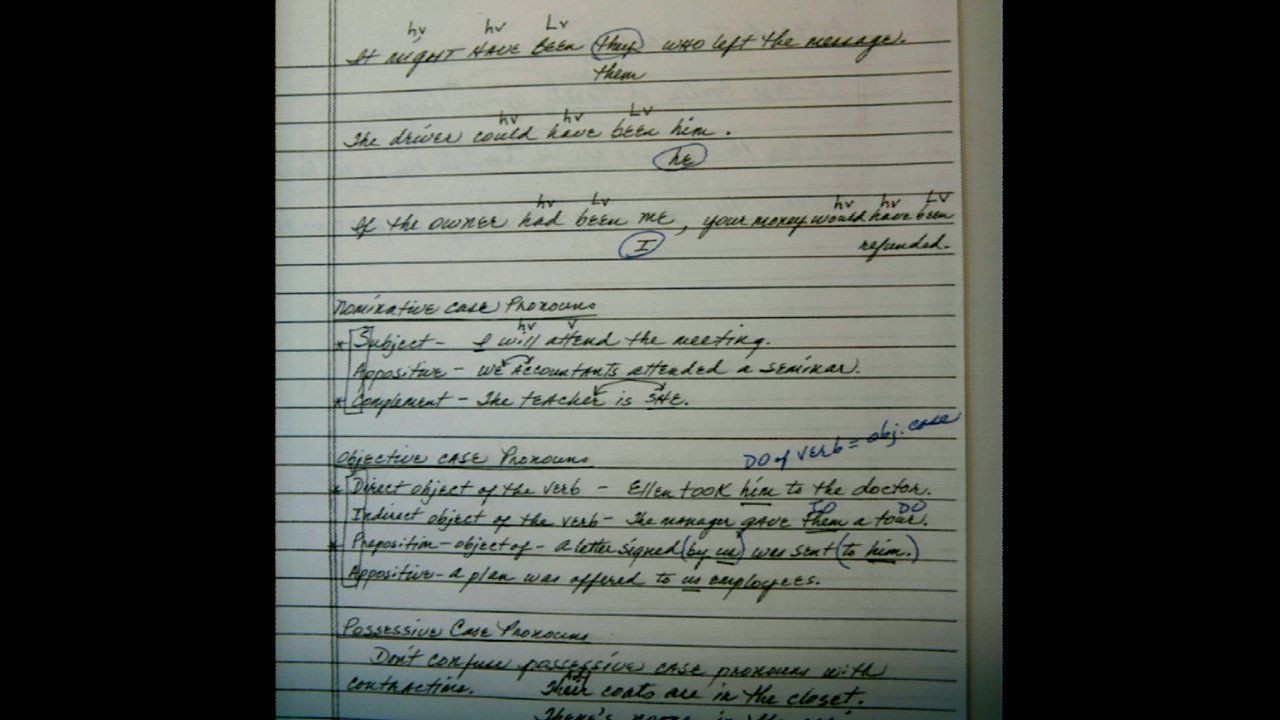 hv hv Lv
It might HAVE BEEN they who left the message.
them
hv hv Lv
The driver could have been him.
he
hv Lv hv hv Lv
If the owner had been me, your money would have been
I refunded.
Nominative Case Pronouns
hv v
* Subject - I will attend the meeting.
Appositive - We Accountants attended a seminar.
* Complement - The teacher is SHE.
DO of verb = obj. case
Objective Case Pronouns
* Direct object of the verb - Ellen took him to the doctor.
IO DO
Indirect object of the verb - The manager gave them a tour.
* Preposition - object of - a letter signed (by us) was sent (to him.)
Appositive - a plan was offered to us employees.
Possessive Case Pronouns
Don't confuse possessive case pronouns with
contractions. Their coats are in the closet.
There's